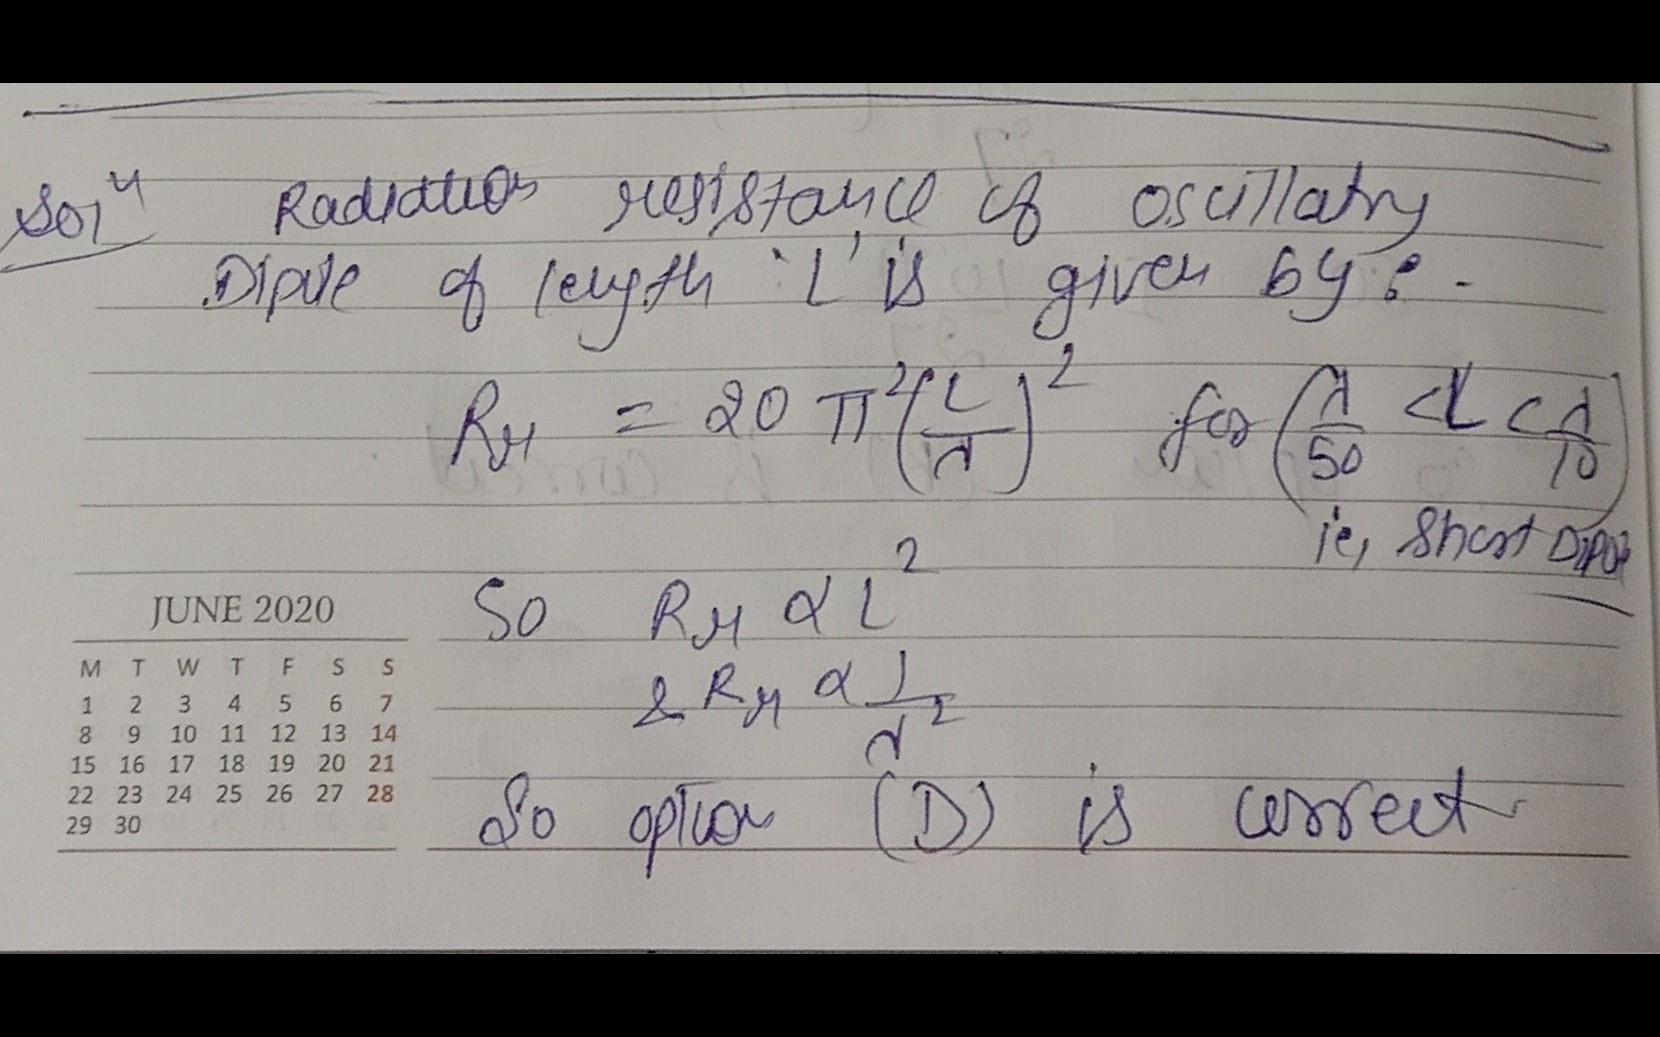 Solⁿ Radiation resistance of oscillatry
Dipole of length 'L' is given by :-
Rr = 20 π² (L/λ)² for (λ/50 < L < λ/10)
ie, Short Dipole
So Rr α L²
& Rr α 1/λ²
So option (D) is correct
JUNE 2020
M T W T F S S
1 2 3 4 5 6 7
8 9 10 11 12 13 14
15 16 17 18 19 20 21
22 23 24 25 26 27 28
29 30